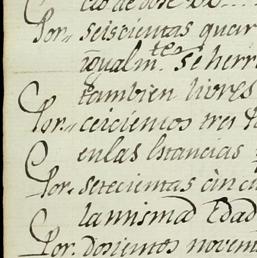 Por seiscientas quar
igualmte. se herr
tambien libres
Por cerciemos tres
en las Estancias
Por setecientas cinc
la mismad Edad
Por Dosientos novem